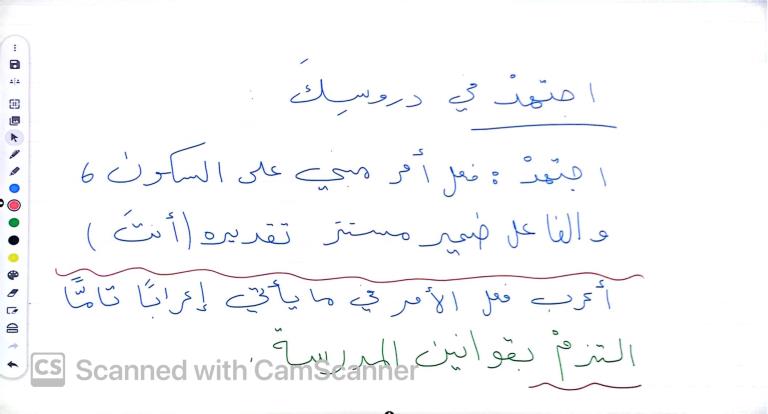 اجتهدْ في دروسِكَ
اجتهدْ : فعل أمر مبني على السكون ،
والفاعل ضمير مستتر تقديره (أنتَ)
أعرب فعل الأمر في ما يأتي إعرابًا تامًّا
التزمْ بقوانين المدرسة .
CS Scanned with CamScanner